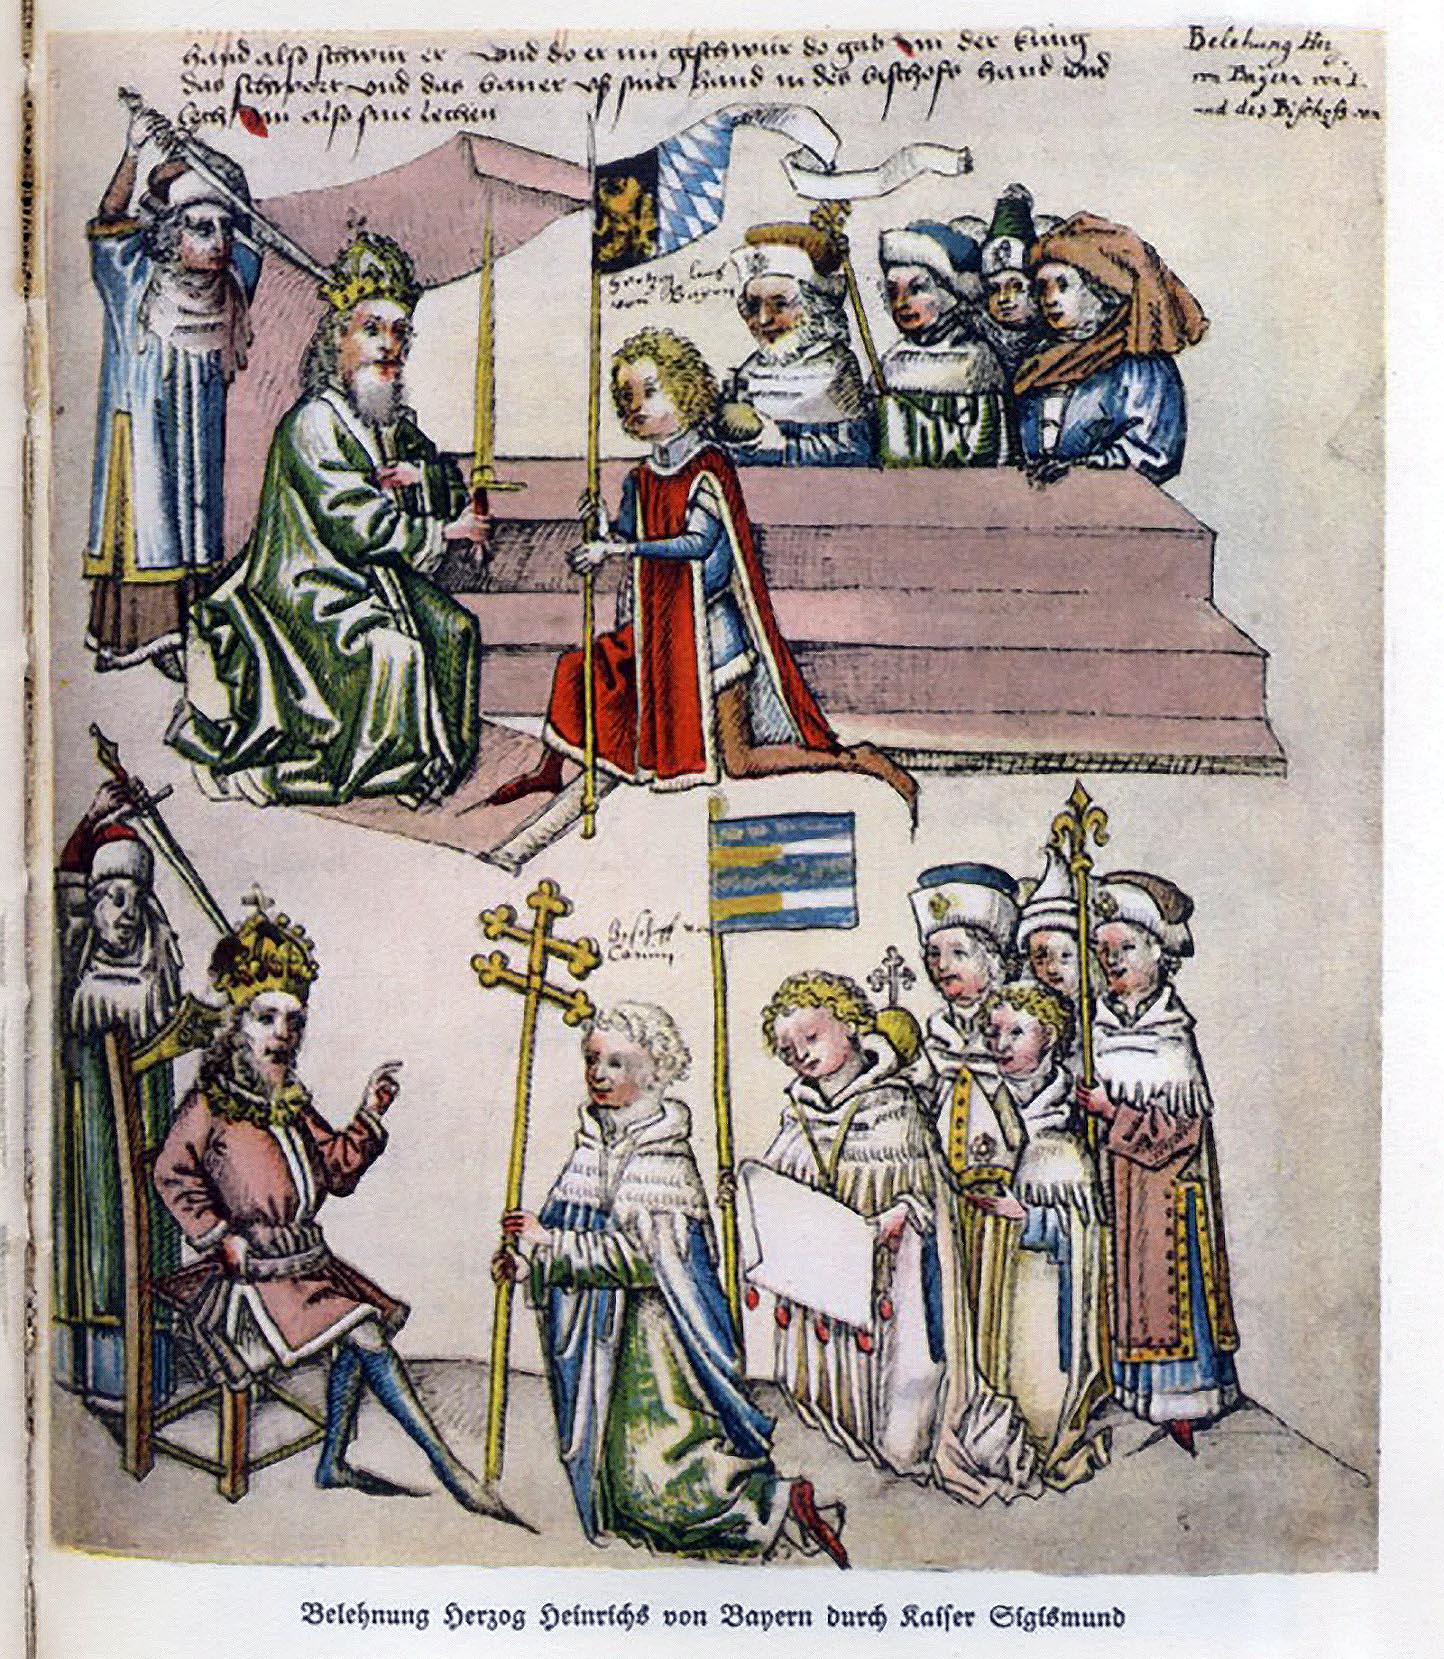 hand also schwur er vnd do er nu geschwur do gab Im der kung
das schwert vnd das baner vß siner hand in des bischofs hand vnd
lech Im also sine lechen
Belehung
von Bayern
und des Bischofs von
hertzog
von Bayern
Bischoff
Belehnung Herzog Heinrichs von Bayern durch Kaiser Sigismund